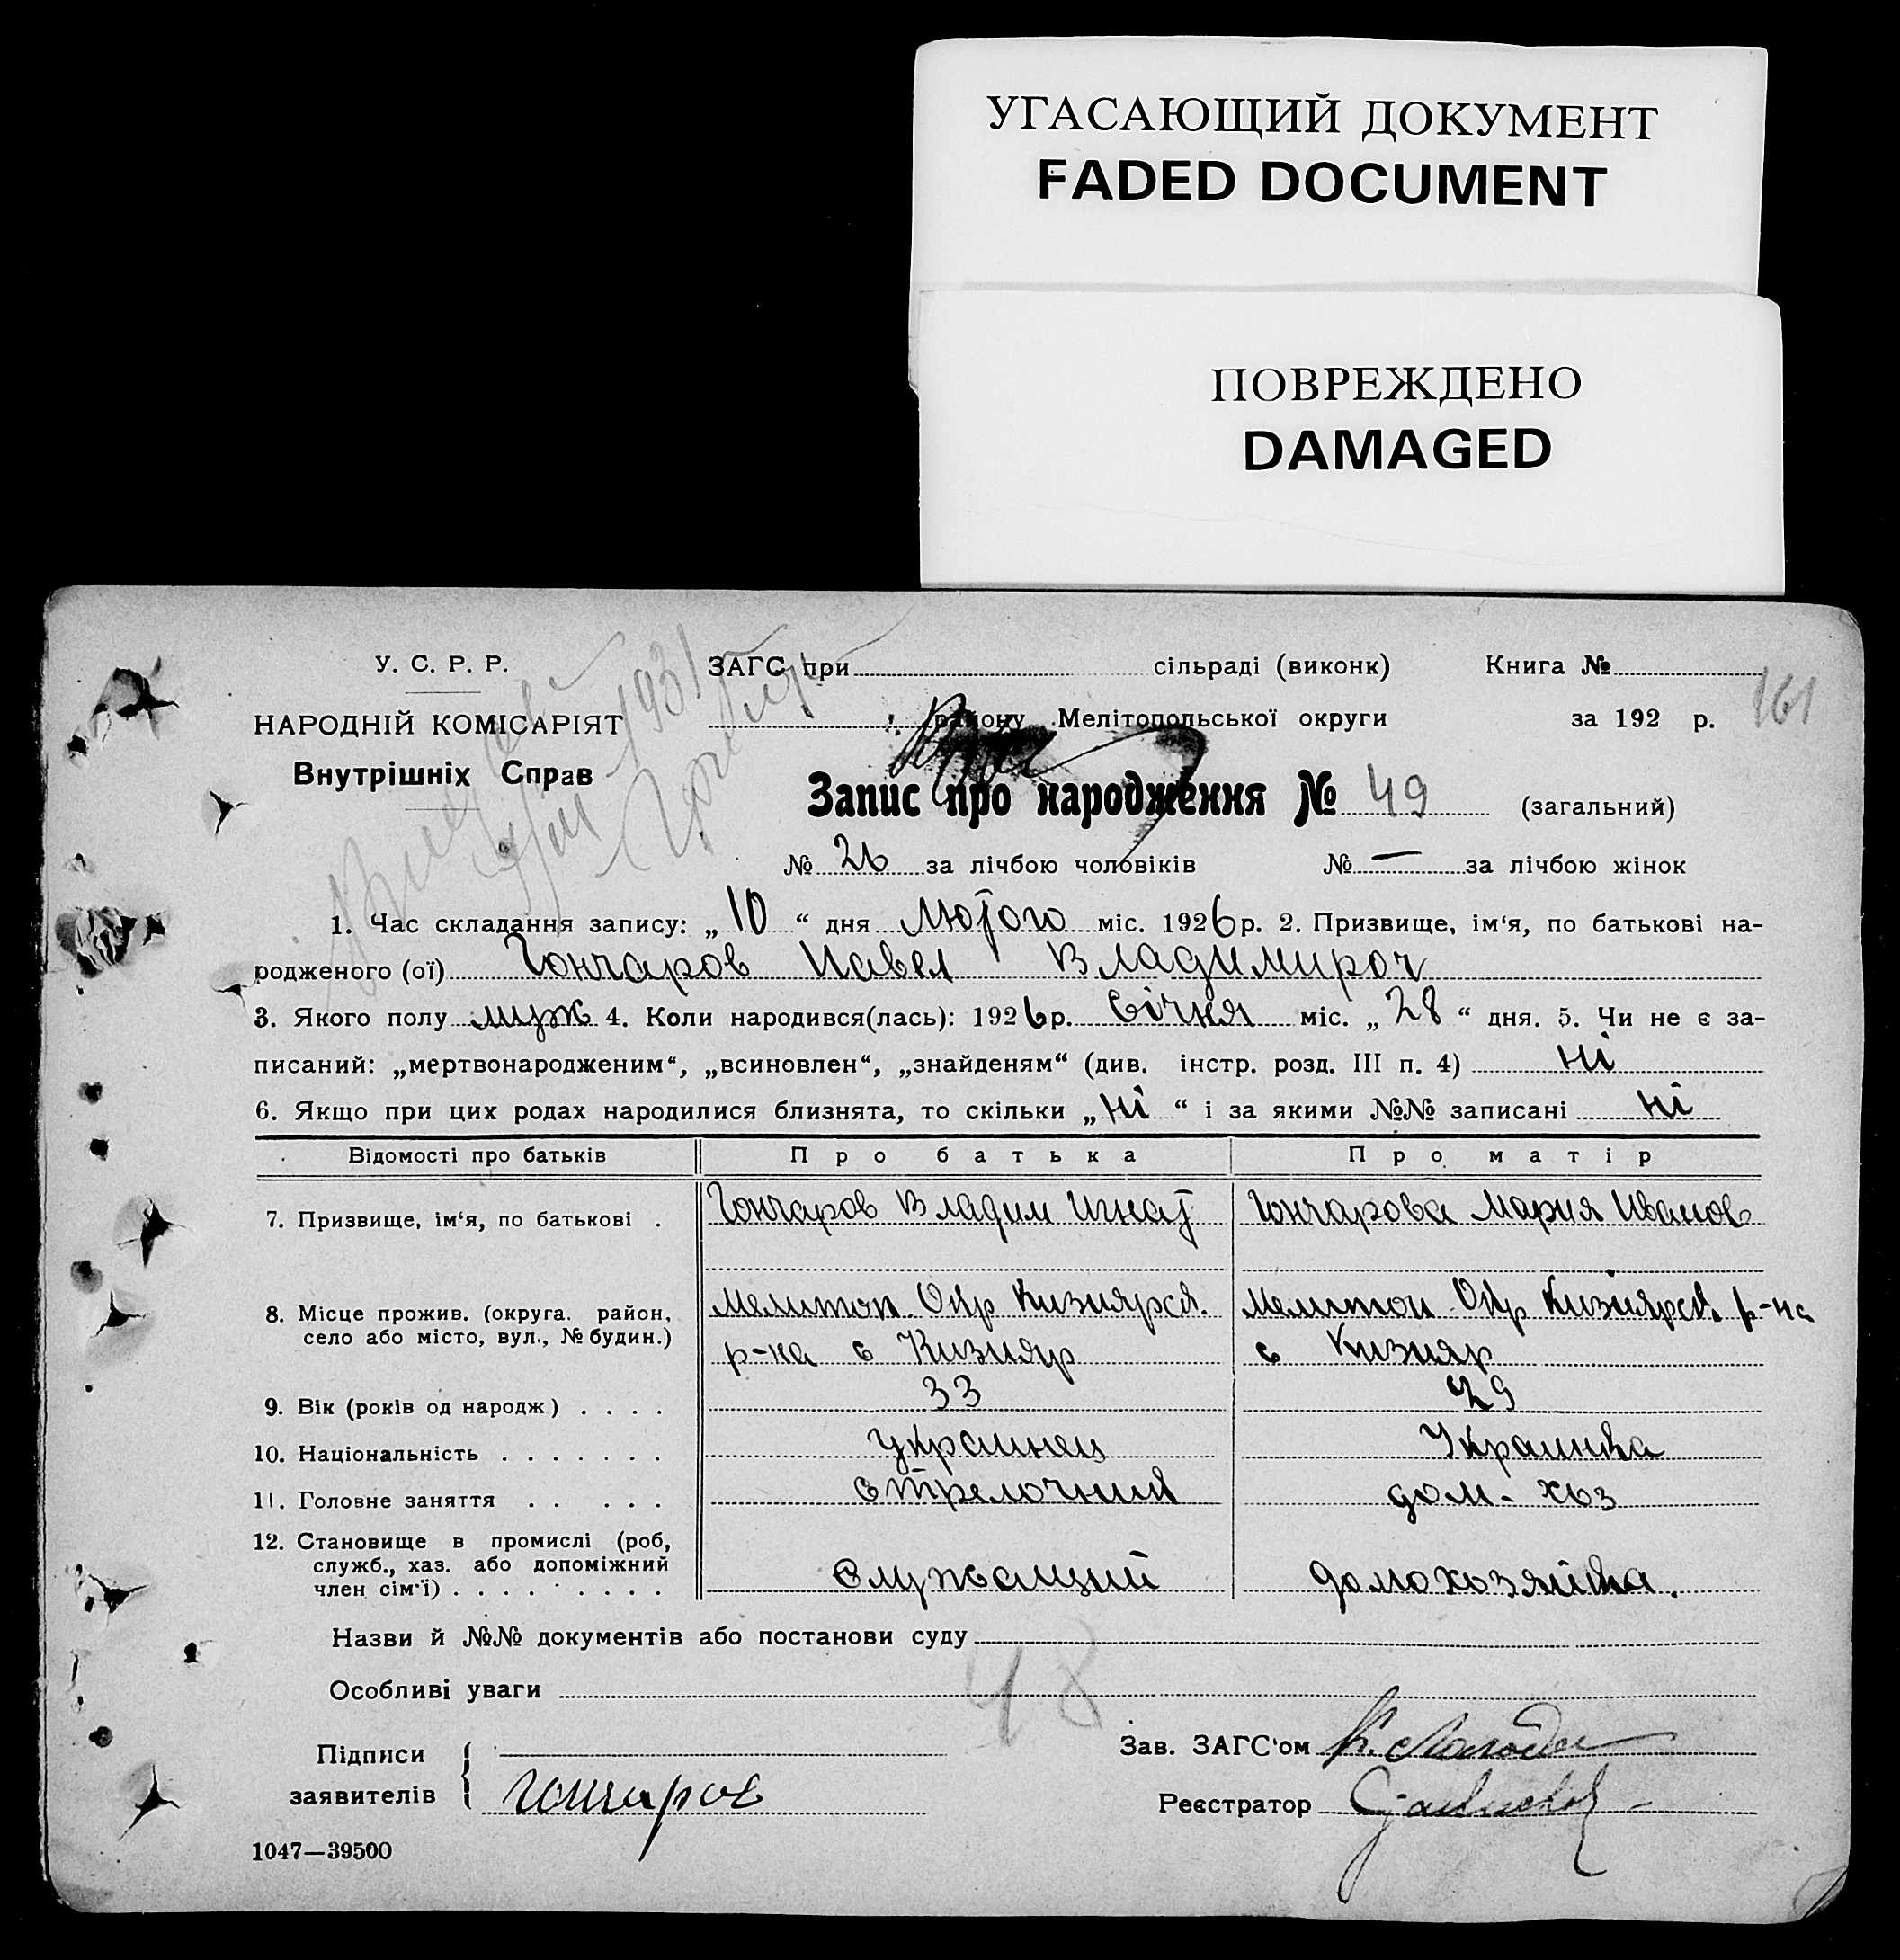 УГАСАЮЩИЙ ДОКУМЕНТ
FADED DOCUMENT
ПОВРЕЖДЕНО
DAMAGED
У. С. Р. Р.
НАРОДНІЙ КОМІСАРІЯТ
Внутрішніх Справ
1931
ЗАГС при сільраді (виконк) Книга №
161
району Мелітопольської округи за 192 р.
Запис про народження № 49 (загальний)
№ 26 за лічбою чоловіків № — за лічбою жінок
1. Час складання запису: „ 10 “ дня Лютого міс. 1926 р. 2. Призвище, ім‘я, по батькові на-
родженого (ої) Гончаров Павел Владимироч
3. Якого полу муж 4. Коли народився(лась): 1926 р. Січня міс. „ 28 “ дня. 5. Чи не є за-
писаний: „мертвонародженим“, „всиновлен“, „знайденям“ (див. інстр. розд. III п. 4) ні
6. Якщо при цих родах народилися близнята, то скільки „ ні “ і за якими №№ записані ні
Відомості про батьків Про батька Про матір
7. Призвище, ім‘я, по батькові . Гончаров Владим Игнат Гончарова Мария Иванов
8. Місце прожив. (округа. район, село або місто, вул., № будин.)
Мелитоп Окр Кизиярск. Мелитоп Окр Кизиярск. р-на
р-на с Кизияр с Кизияр
9. Вік (років од народж) . . . . 33 29
10. Національність . . . . . . . украинец Украинка
11. Головне заняття . . . . . стрелочник дом-хоз
12. Становище в промислі (роб, служб., хаз. або допоміжний член сім‘ї) . . . . . . . . . Служащий домохозяйка.
Назви й №№ документів або постанови суду
Особливі уваги
48
Підписи заявителів Гончаров
Зав. ЗАГС‘ом
Реєстратор
1047—39500